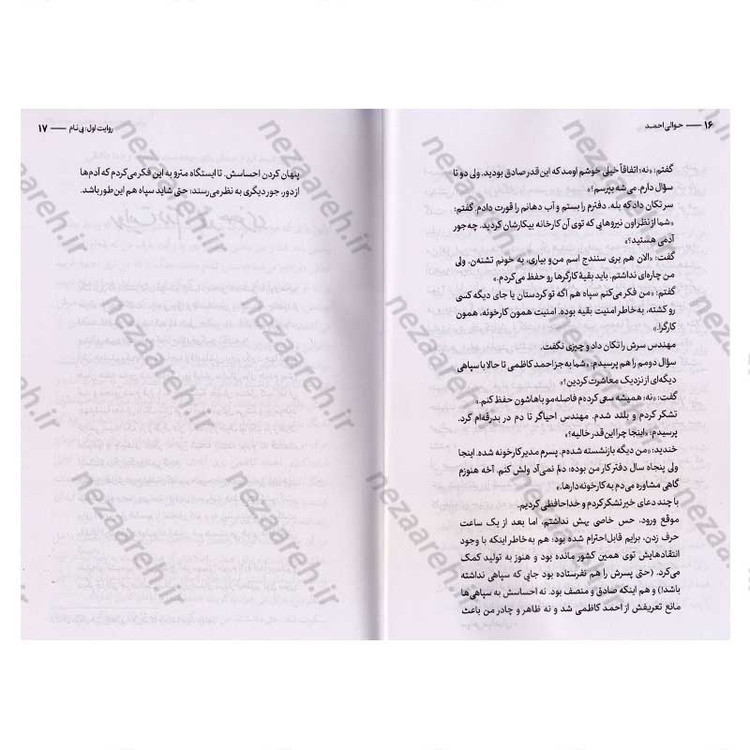 ۱۶ — حوالی احمد
گفتم: «نه؛ اتفاقاً خیلی خوشم اومد که این قدر صادق بودید. ولی دو تا
سؤال دارم. می‌شه بپرسم؟»
سر تکان داد که بله. دفترم را بستم و آب دهانم را قورت دادم. گفتم:
«شما از نظر اون نیروهایی که توی آن کارخانه بیکارشان کردید، چه‌جور
آدمی هستید؟»
گفت: «الان هم بری سنندج اسم من‌و بیاری، به خونم تشنه‌ن. ولی
من چاره‌ای نداشتم. باید بقیهٔ کارگرها رو حفظ می‌کردم.»
گفتم: «من فکر می‌کنم سپاه هم اگه تو کردستان یا جای دیگه کسی
رو کشته، به‌خاطر امنیت بقیه بوده. امنیت همون کارخونه. همون
کارگرا.»
مهندس سرش را تکان داد و چیزی نگفت.
سؤال دومم را هم پرسیدم: «شما به جز احمد کاظمی تا حالا با سپاهی
دیگه‌ای از نزدیک معاشرت کردین؟»
گفت: «نه؛ همیشه سعی کرده‌م فاصله‌مو باهاشون حفظ کنم.»
تشکر کردم و بلند شدم. مهندس احیاگر تا دم در بدرقه‌ام کرد.
پرسیدم: «اینجا چرا این قدر خالیه؟»
خندید: «من دیگه بازنشسته شده‌م. پسرم مدیر کارخونه شده. اینجا
ولی پنجاه سال دفتر کار من بوده؛ دلم نمی‌آد ولش کنم. آخه هنوزم
گاهی مشاوره می‌دم به کارخونه‌دارها.»
با چند دعای خیر تشکر کردم و خداحافظی کردیم.
موقع ورود، حس خاصی بهش نداشتم، اما بعد از یک ساعت
حرف زدن، برایم قابل‌احترام شده بود؛ هم به‌خاطر اینکه با وجود
انتقادهایش توی همین کشور مانده بود و هنوز به تولید کمک
می‌کرد. (حتی پسرش را هم نفرستاده بود جایی که سپاهی نداشته
باشد!) و هم اینکه صادق و منصف بود. نه احساسش به سپاهی‌ها
مانع تعریفش از احمد کاظمی شد و نه ظاهر و چادر من باعث
روایت اول: بی نام — ۱۷
پنهان کردن احساسش. تا ایستگاه مترو به این فکر می‌کردم که آدم‌ها
از دور، جور دیگری به نظر می‌رسند؛ حتی شاید سپاه هم این طور باشد.
nezaareh.ir
nezaareh.ir
nezaareh.ir
nezaareh.ir
nezaareh.ir
nezaareh.ir
nezaareh.ir
nezaareh.ir
nezaareh.ir